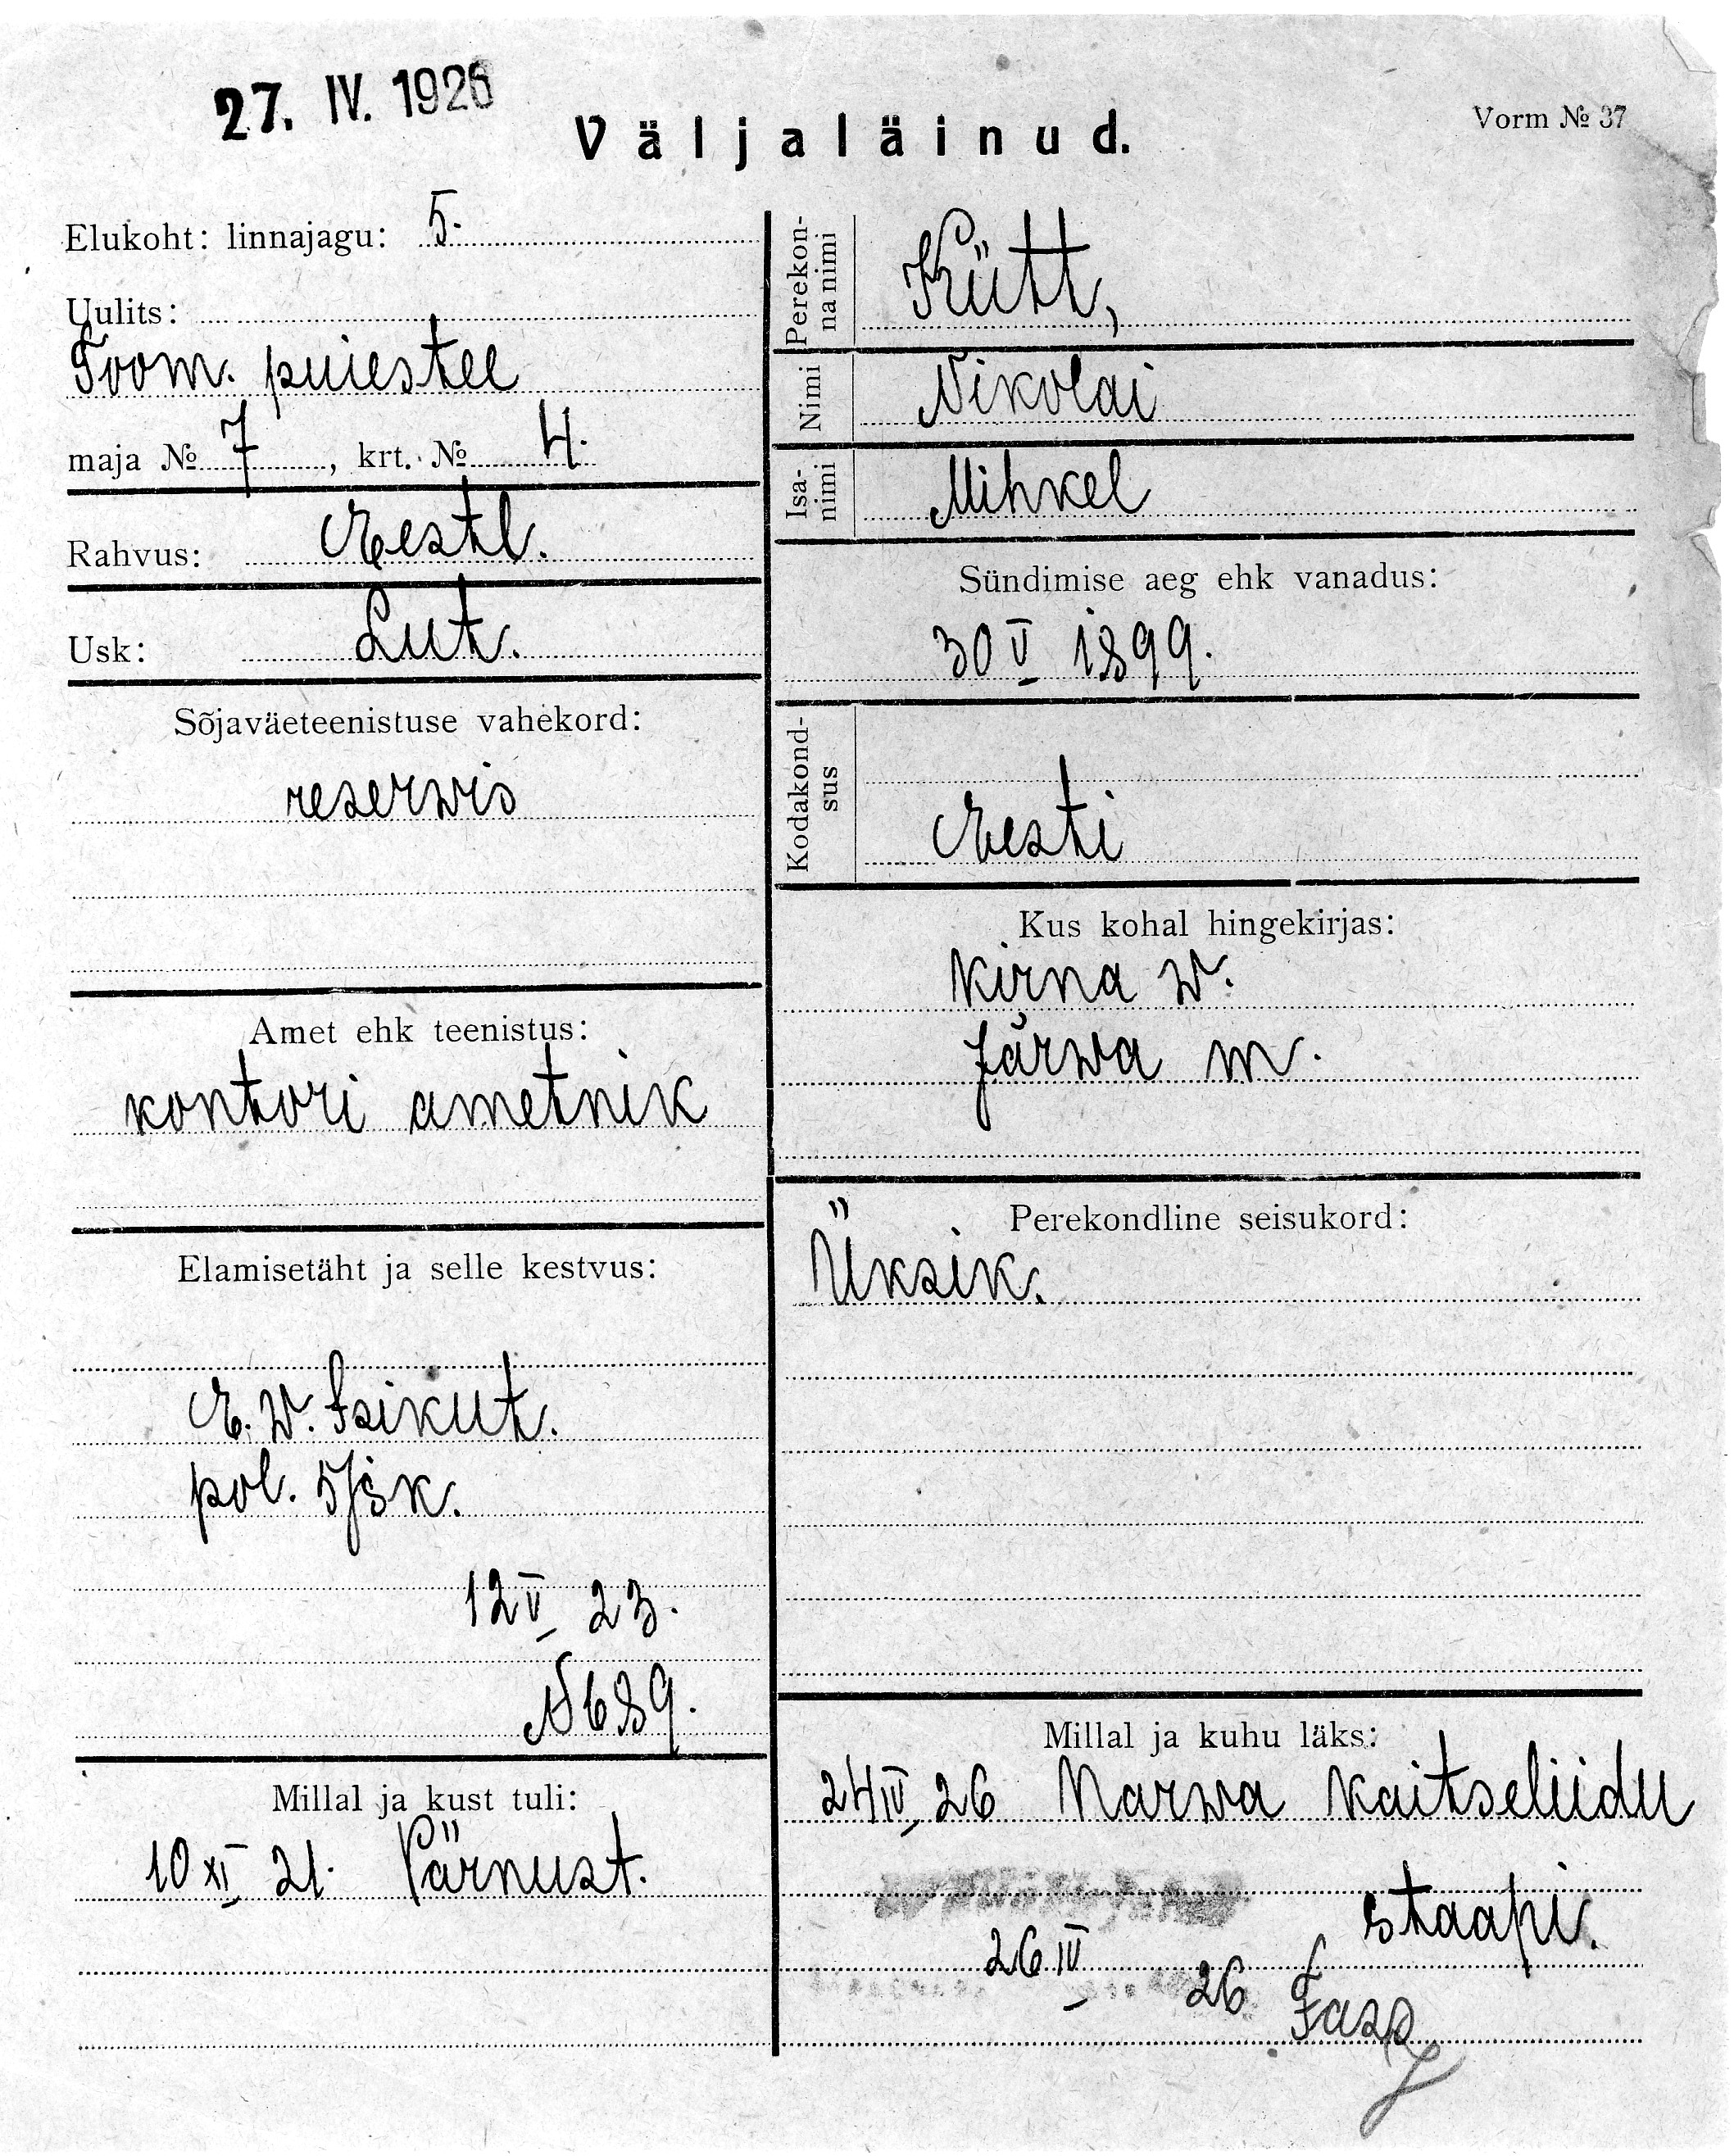 27. IV. 1926
Väljaläinud.
Vorm № 37
Elukoht: linnajagu: 5.
Uulits:
Toom. puiestee
maja № 7, krt. № 4.
Rahvus: Eestl.
Usk: Lut.
Sõjaväeteenistuse vahekord:
reserwis
Amet ehk teenistus:
kontori ametnik
Elamisetäht ja selle kestvus:
E. W. Isikut.
pol. 5/jsk.
12 V 23.
№ 689.
Millal ja kust tuli:
10 XI 21. Pärnust.
Perekonna nimi
Kütt,
Nimi
Nikolai
Isanimi
Mihkel
Sündimise aeg ehk vanadus:
30 V 1899.
Kodakondsus
Eesti
Kus kohal hingekirjas:
Kirna w.
Järwa m.
Perekondline seisukord:
Üksik.
Millal ja kuhu läks:
24 IV 26 Narwa Kaitseliidu
staapi.
26 IV 26